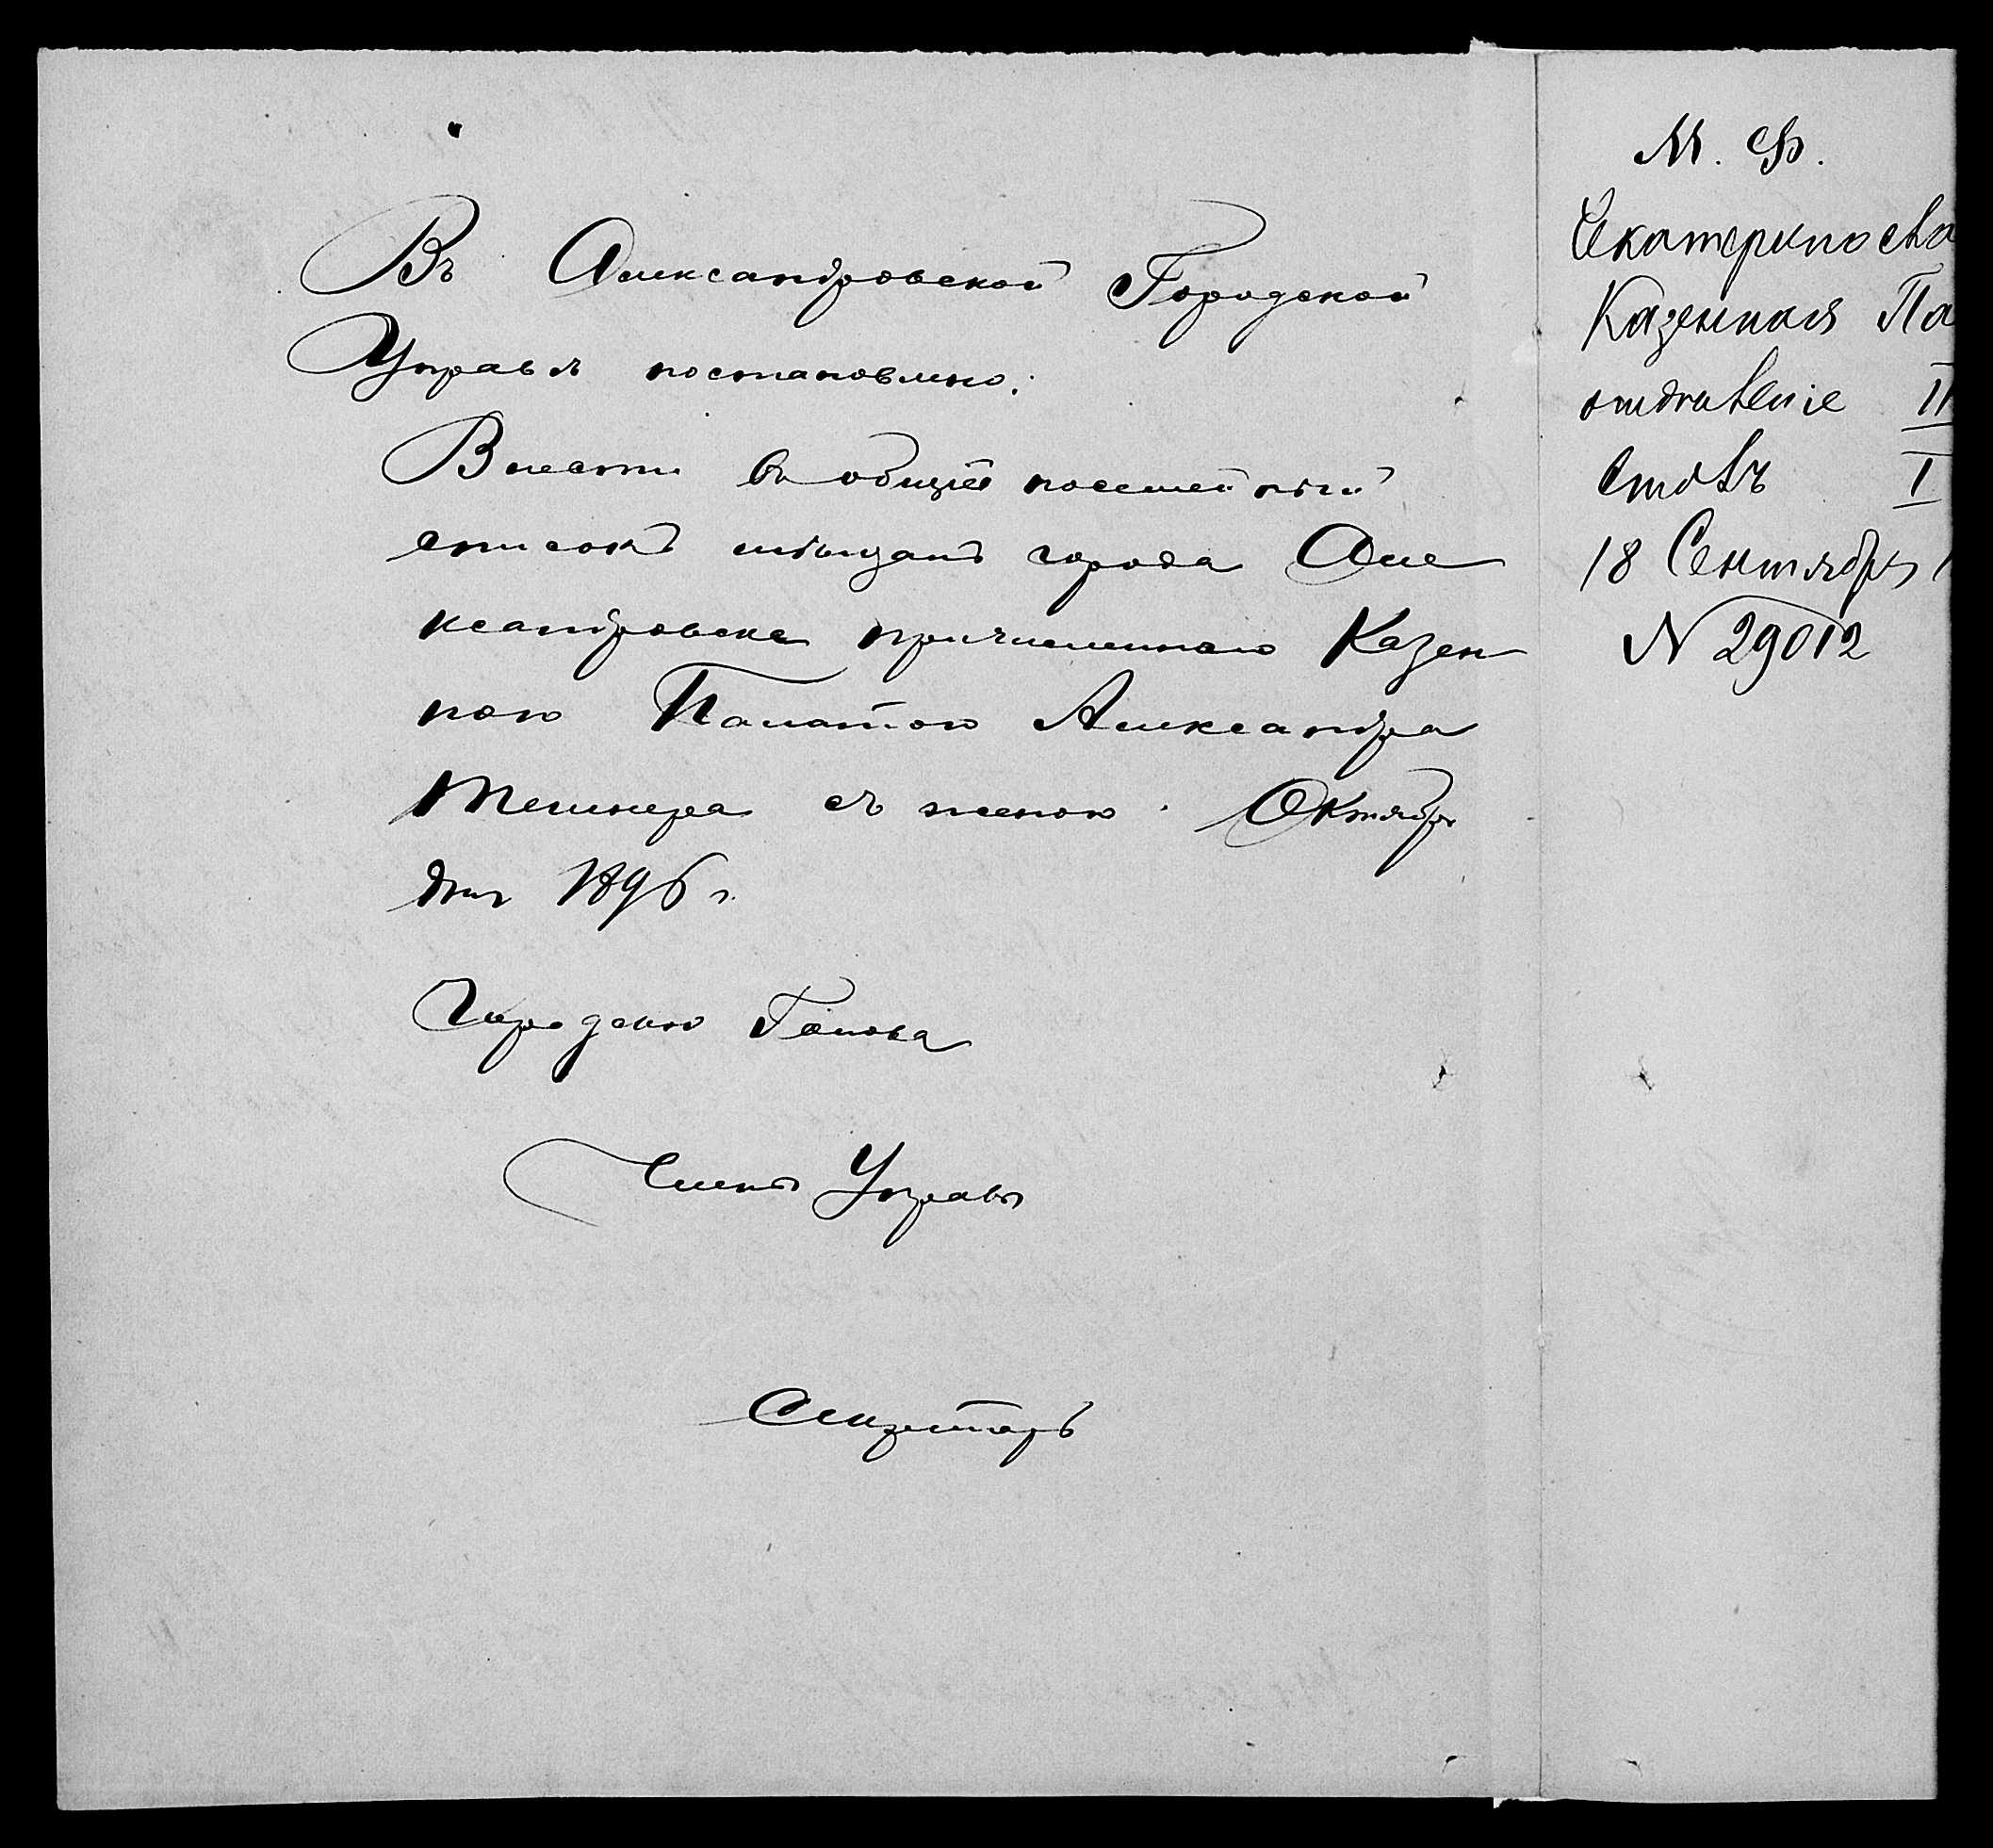 Въ Александровской Городской
Управѣ постановлено:
Внести въ общій посемейный
списокъ мѣщанъ города Але
ксандровска причисленнаго Казен
ною Палатою Александра
с женою. Октября
дня 1896 г.
Городской Голова
Членъ Управы
Секретарь
М. Ф.
Екатериносла
Казенная Па
отдѣленіе II
Столъ I
18 Сентября 1
N 29012